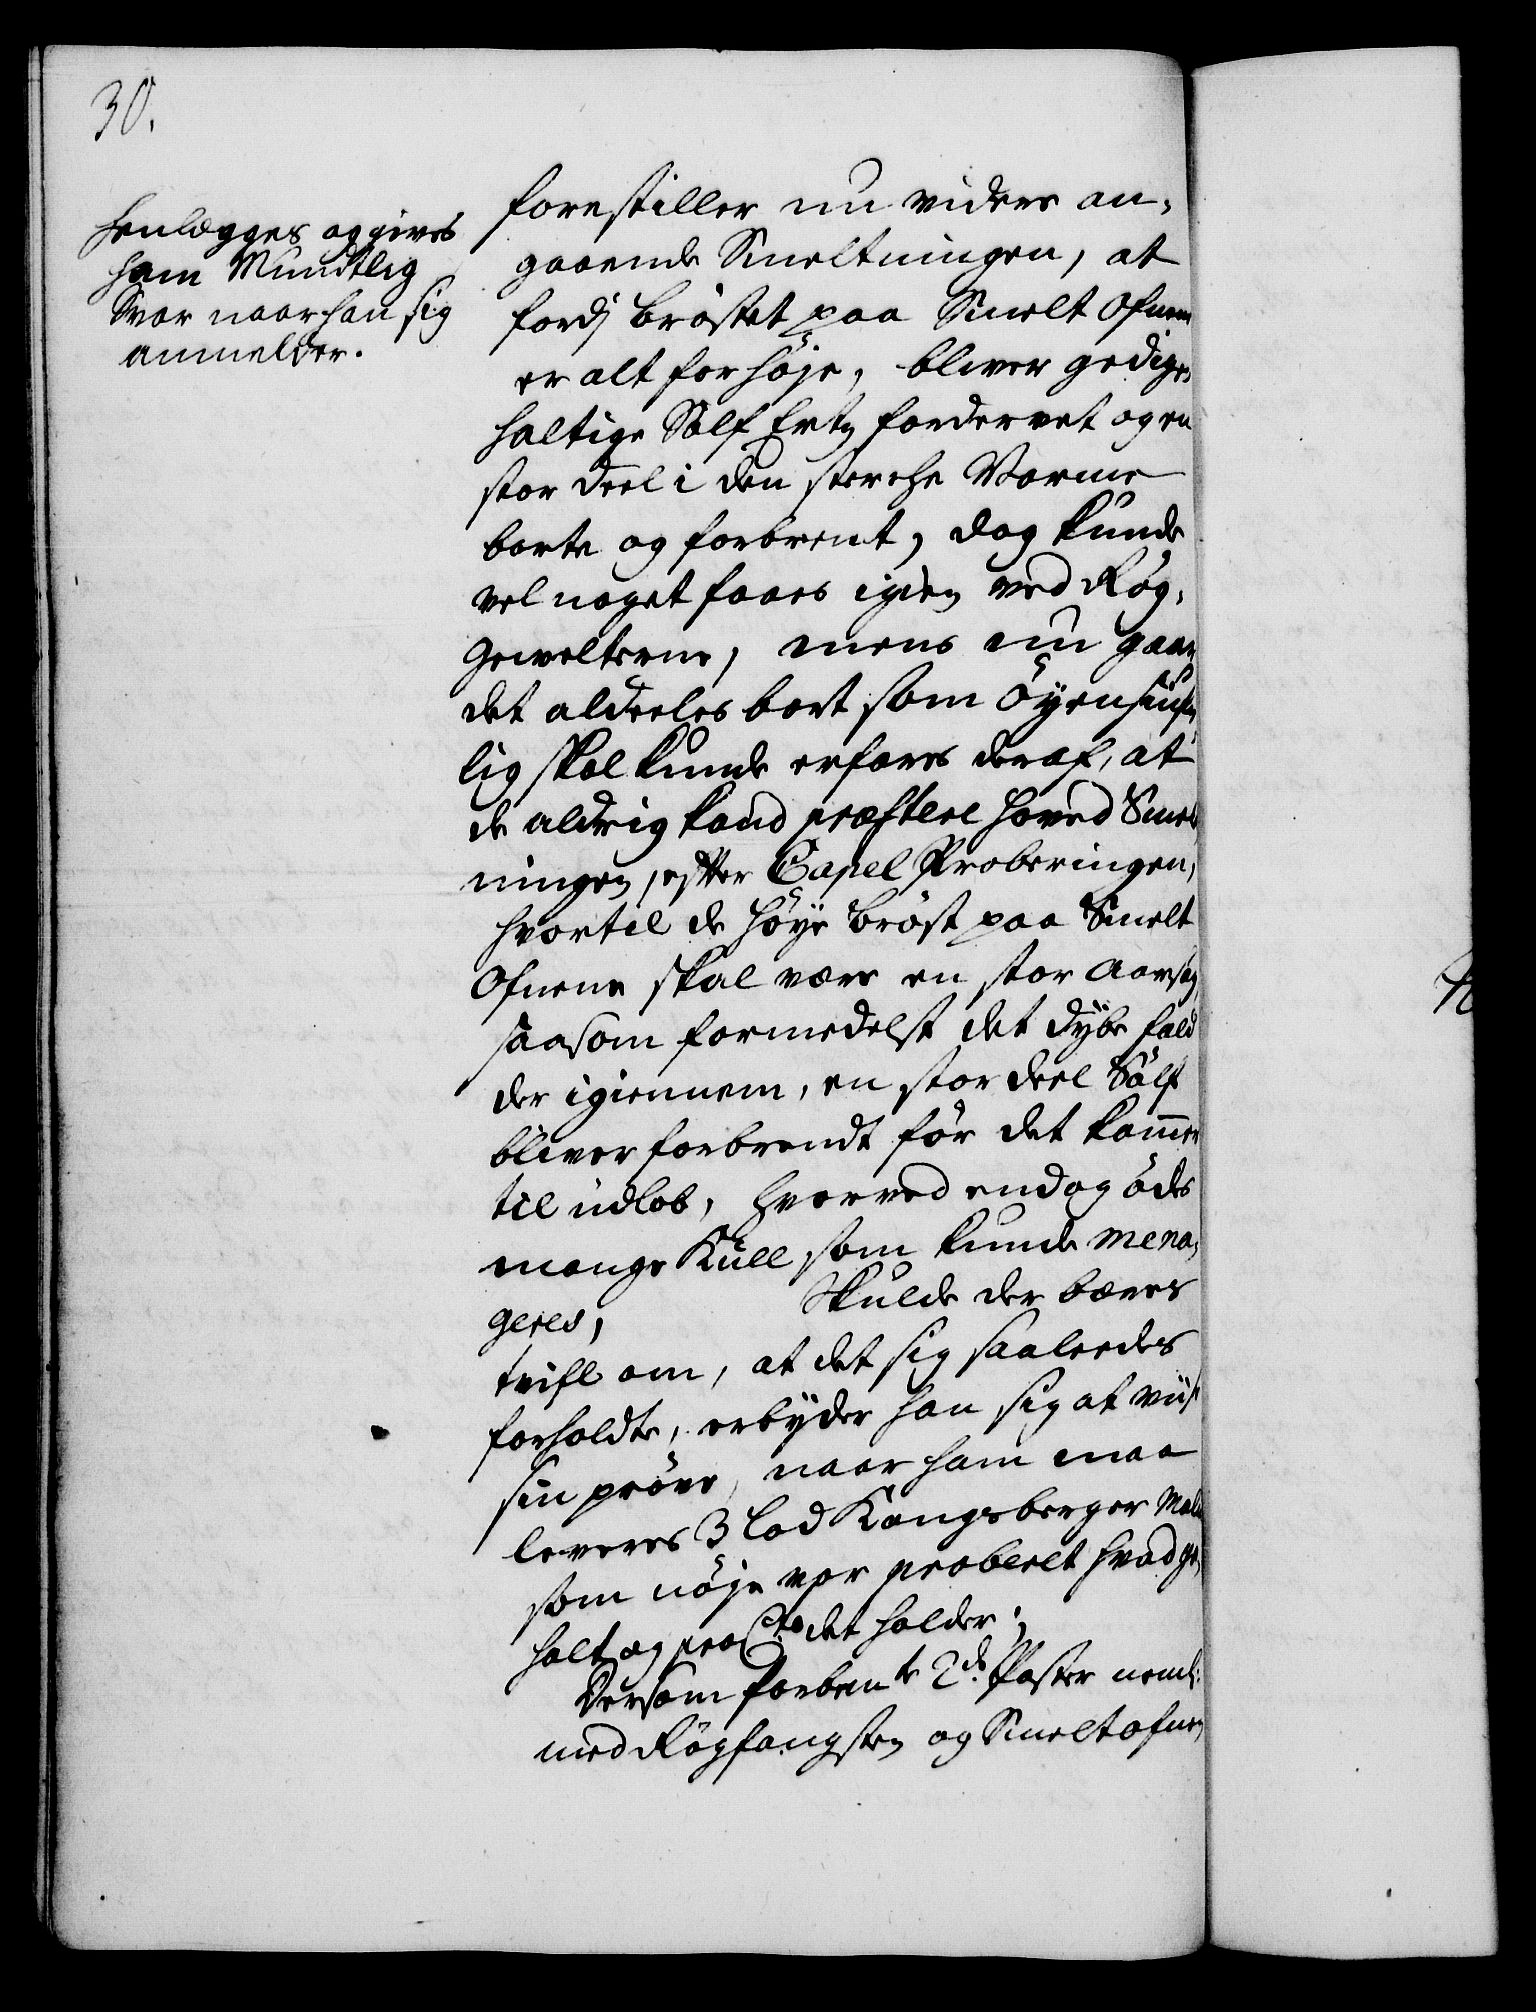 30.
Henlegges og gives
ham Mundtlig
Svar naar han sig
anmelder.
forestiller nu videre an-
gaaende Smeltningen, at
fordj brøstet paa Smelt Ofnene
er alt for høje, bliver gedigen
haltige Sølf Ertz fordervet og en
stor deel i den sterche Varme
borte og forbrent, dog kunde
vel noget faaes igien ved Røg-
Gewelterne, mens nu gaar
det aldeeles bort som øyensiun-
lig skal kunde erfares deraf, at
de aldrig kand præstere hoved Smelt-
ningen, efter Capel Proberingen,
hvortil de høye brøst paa Smelt
Ofnene skal være en stor aarsag,
saasom formedelst det dybe fald
der igiennem, en stor deel Sølf
bliver forbrendt før det kommer
til udløb, hvorved endog ødes
mange Kull som kunde mena-
geres, Skulde der bæres
tvifl om, at det sig saaledes
forholdte, erbyder han sig at viise
sin prøve, naar ham maa
leveres 3 lod Kongsberger Malm
som nøje var proberet hvad ge-
halt og pro Cto det holder;
Dersom forbente 2de Poster neml:
med Røgfangsten og Smeltofnen